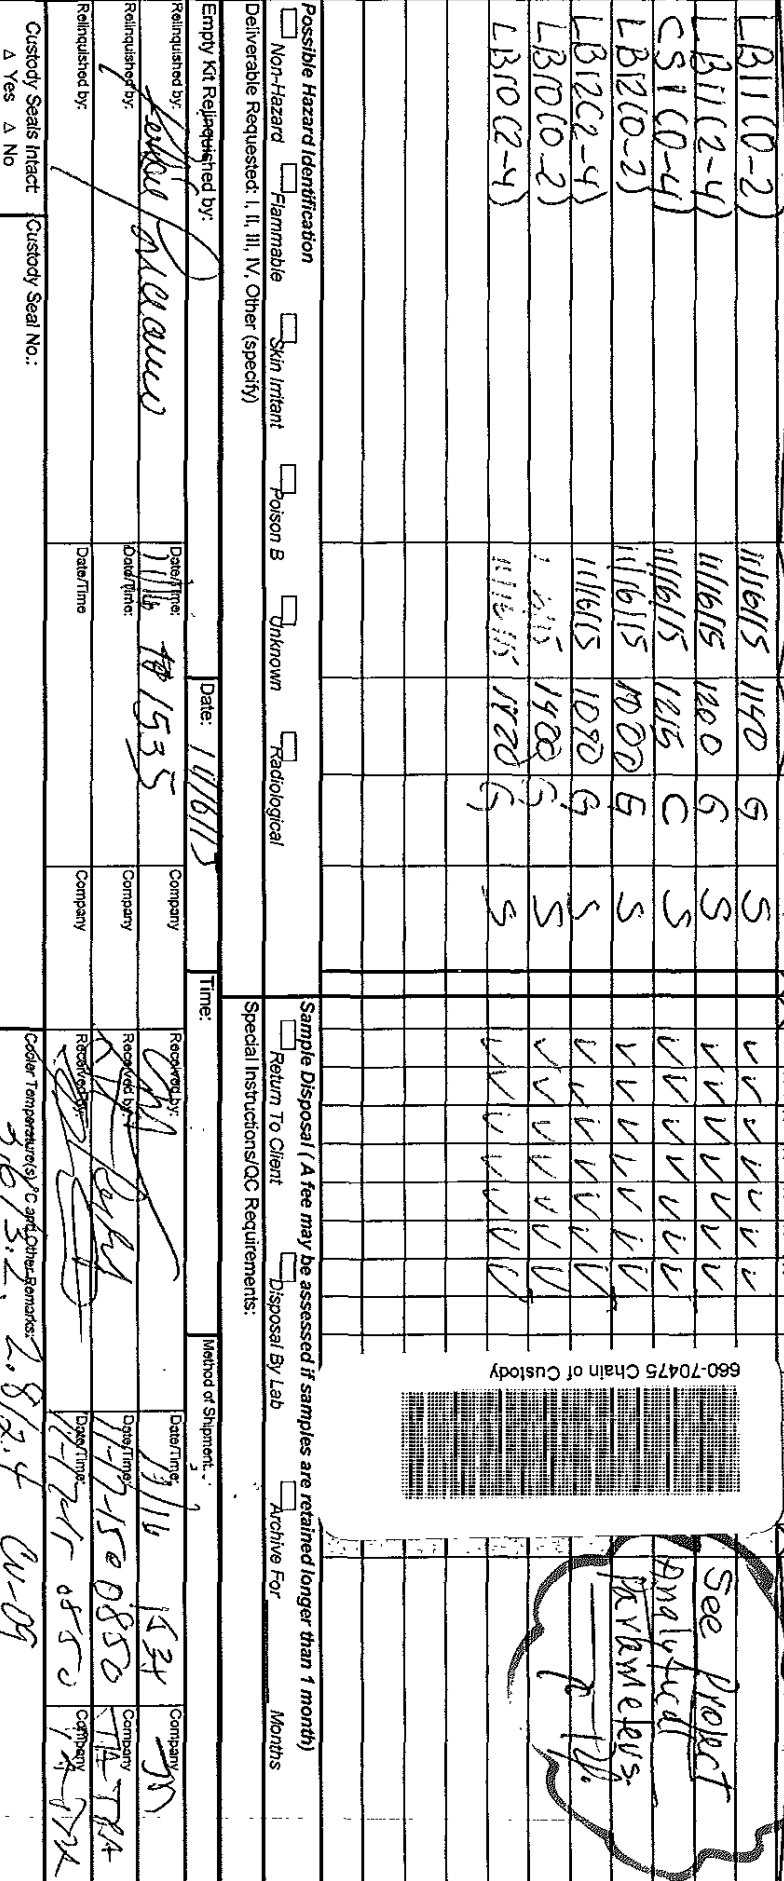 LB11(0-2) 11/16/15 1140 G S v v v v v v v
LB11(2-4) 11/16/15 1200 G S v v v v v v v
CS1(0-4) 11/16/15 1215 C S v v v v v v v
LB12(0-2) 11/16/15 1000 G S v v v v v v v
LB12(2-4) 11/16/15 G S v v v v v v v
LB10(0-2) 1400 G S v v v v v v v
LB10(2-4) 11/16/15 G S v v v v v v v
660-70475 Chain of Custody
See Project
Analytical
Parameters.
Possible Hazard Identification
Non-Hazard Flammable Skin Irritant Poison B Unknown Radiological
Sample Disposal ( A fee may be assessed if samples are retained longer than 1 month)
Return To Client Disposal By Lab Archive For Months
Deliverable Requested: I, II, III, IV, Other (specify)
Special Instructions/QC Requirements:
Empty Kit Relinquished by: Date: 11/16/15 Time: Method of Shipment:
Relinquished by: Date/Time: 11/16 1535 Company Received by: Date/Time: 11/16 1534 Company
Relinquished by: Date/Time: Company Received by: Date/Time: 11-17-15 0850 Company TA-TPA
Relinquished by: Date/Time Company Received by: Date/Time: 11-17-15 0850 Company
Custody Seals Intact: Custody Seal No.:
Δ Yes Δ No
Cooler Temperature(s) °C and Other Remarks:
3.6/3.2, 2.8/2.4 CU-09